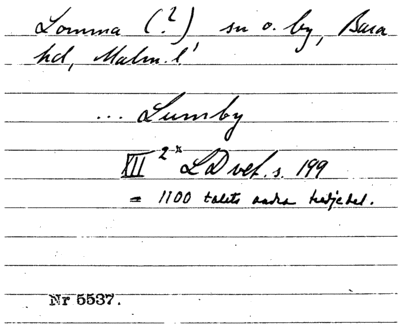 Lomma (?) sn o. by, Bara
hd, Malm. l.
... Lumby
XII 2x LDvet. s. 199
= 1100 talets andra tredjedel.
Nr 5537.